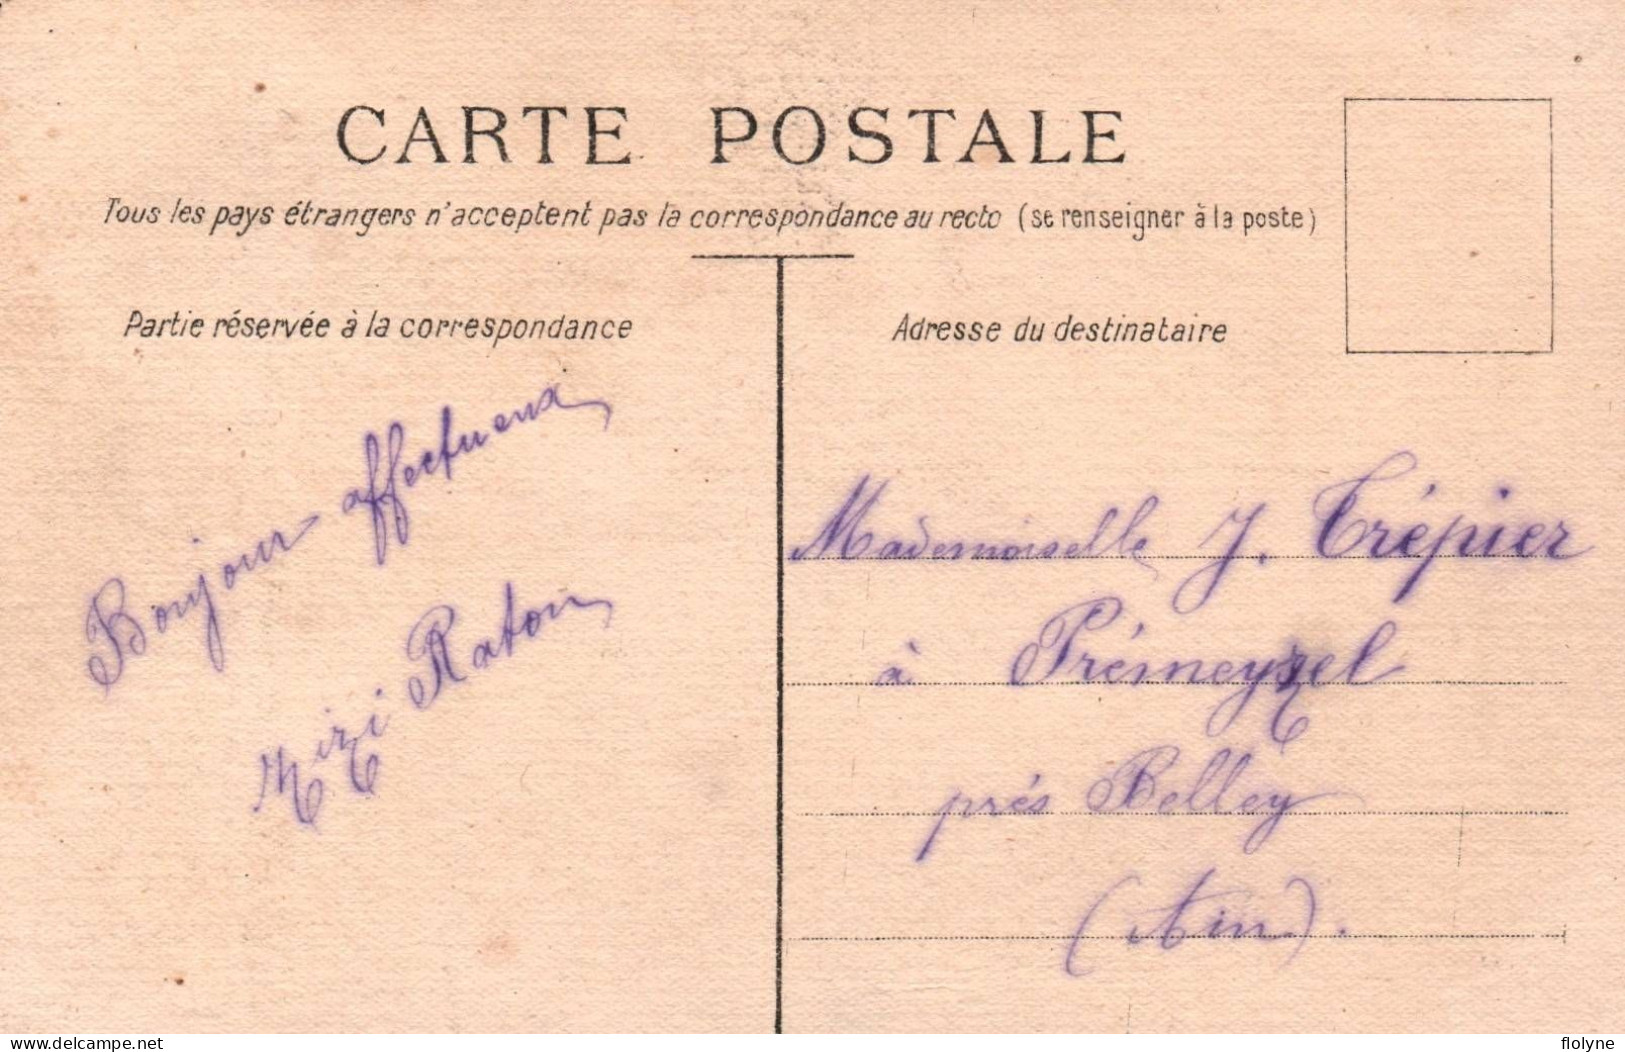 CARTE POSTALE
Tous les pays étrangers n'acceptent pas la correspondance au recto (se renseigner à la poste)
Partie réservée à la correspondance
Adresse du destinataire
Bonjour affectueux
Zizi Raton
Mademoiselle J. Trépier
à Prémeyzel
prés Belley
(Ain).
delcampe.net
flolyne